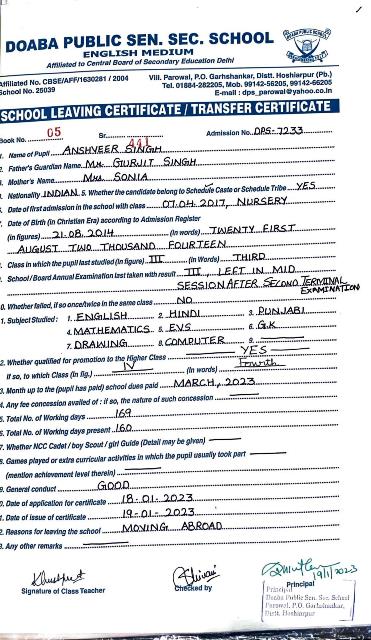 DOABA PUBLIC SEN. SEC. SCHOOL
ENGLISH MEDIUM
Affiliated to Central Board of Secondary Education Delhi
Affiliated No. CBSE/AFF/1630281 / 2004
School No. 25039
Vill. Parowal, P.O. Garhshankar, Distt. Hoshiarpur (Pb.)
Tel. 01884-282205, Mob. 99142-56205, 99142-66205
E-mail : dps_parowal@yahoo.co.in
SCHOOL LEAVING CERTIFICATE / TRANSFER CERTIFICATE
Book No. 05 Sr. 441 Admission No. DPS-7233
1. Name of Pupil ANSHVEER SINGH
Father's Guardian Name Mr. GURJIT SINGH
Mother's Name Mrs. SONIA
Nationality INDIAN 5. Whether the candidate belong to Schedule Caste or Schedule Tribe YES
Date of first admission in the school with class 07.04.2017, NURSERY
Date of Birth (in Christian Era) according to Admission Register
(in figures) 21.08.2014 (in Words) TWENTY FIRST
AUGUST TWO THOUSAND FOURTEEN
Class in which the pupil last studied (In figure) III (in Words) THIRD
School / Board Annual Examination last taken with result III, LEFT IN MID
SESSION AFTER SECOND TERMINAL
EXAMINATION
0. Whether failed, if so once/twice in the same class NO
1. Subject Studied : 1. ENGLISH 2. HINDI 3. PUNJABI
4. MATHEMATICS 5. EVS 6. G.K
7. DRAWING 8. COMPUTER 9.
2. Whether qualified for promotion to the Higher Class YES
If so, to which Class (in fig.) IV (in words) Fourth
3. Month up to the (pupil has paid) school dues paid MARCH, 2023
4. Any fee concession availed of : if so, the nature of such concession
5. Total No. of Working days 169
6. Total No. of Working days present 160
7. Whether NCC Cadet / boy Scout / girl Guide (Detail may be given)
8. Games played or extra curricular activities in which the pupil usually took part
(mention achievement level therein)
9. General conduct GOOD
0. Date of application for certificate 18-01-2023
1. Date of issue of certificate 19-01-2023
2. Reasons for leaving the school MOVING ABROAD
3. Any other remarks
19/1/2023
Signature of Class Teacher Checked by Principal
Principal
Doaba Public Sen. Sec. School
Parowal, P.O. Garhshankar,
Distt. Hoshiarpur